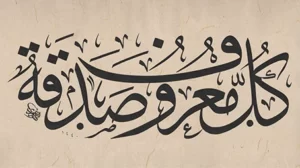 كُلُّ مَعْرُوفٍ صَدَقَةٌ